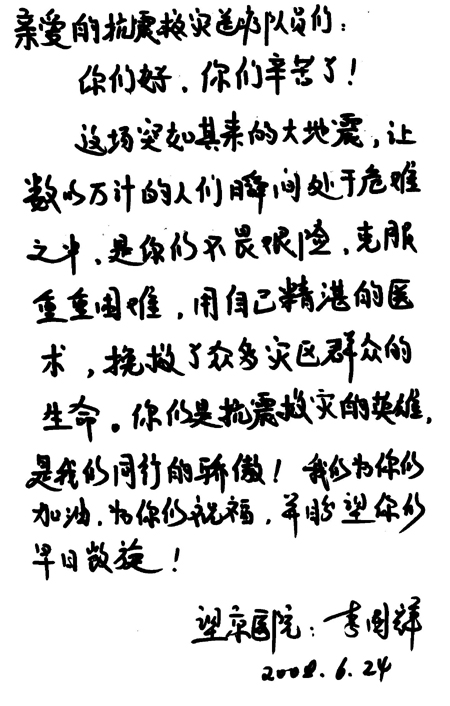 亲爱的抗震救灾医疗队员们：
你们好，你们辛苦了！
这场突如其来的大地震，让
数以万计的人们瞬间处于危难
之中，是你们不畏艰险，克服
重重困难，用自己精湛的医
术，挽救了众多灾区群众的
生命。你们是抗震救灾的英雄，
是我们同行的骄傲！我们为你们
加油，为你们祝福，并盼望你们
早日凯旋！
望京医院：李国祥
2008.6.24